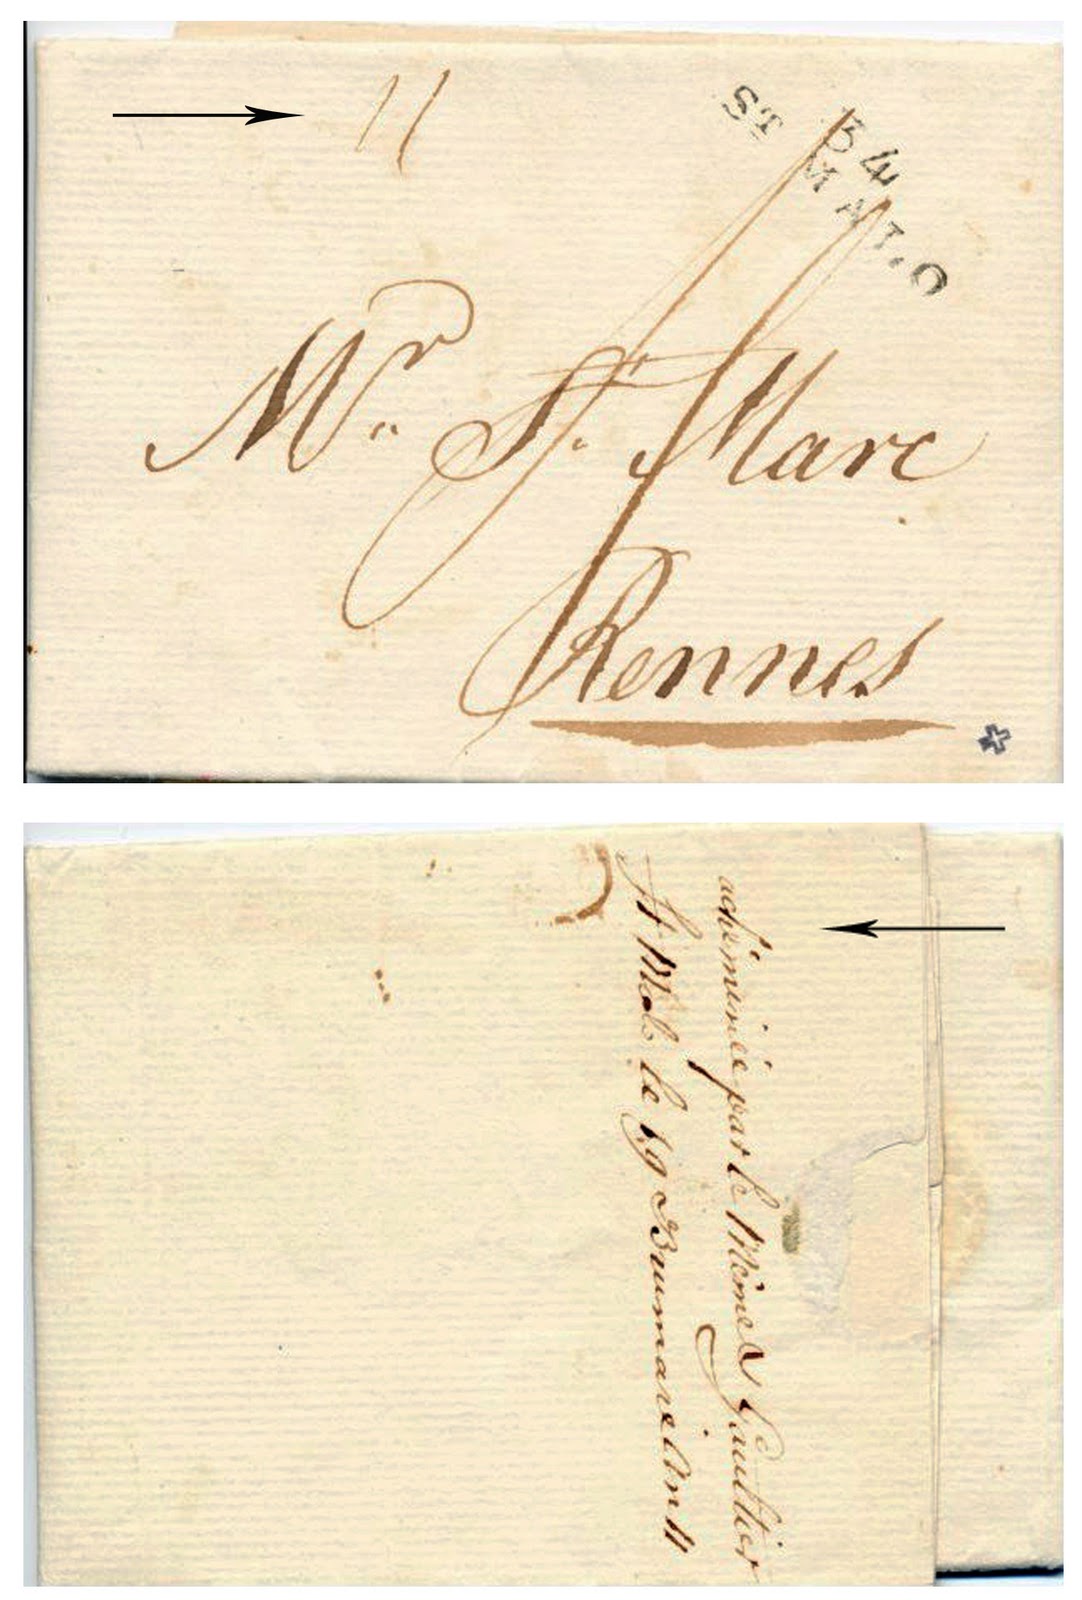 11
34
ST MALO
Mr. St. Marc
Rennes
achéminée par le Même Gaultier
St Malo le 19 Brumaire An 11